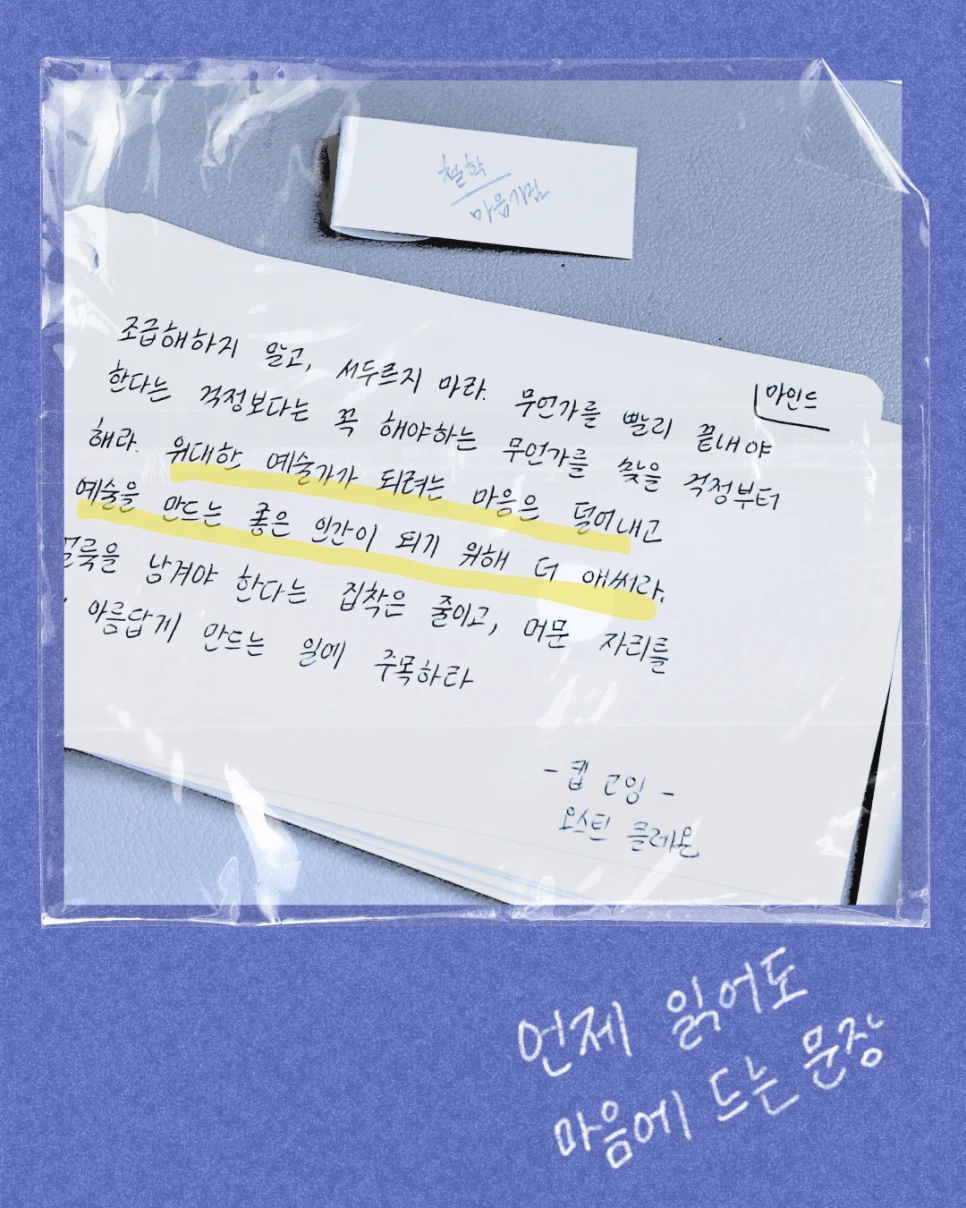 철학
마음가짐
마인드
조급해하지 말고, 서두르지 마라. 무언가를 빨리 끝내야
한다는 걱정보다는 꼭 해야하는 무언가를 찾을 걱정부터
해라. 위대한 예술가가 되려는 마음은 덜어내고
예술을 만드는 좋은 인간이 되기 위해 더 애써라.
얼룩을 남겨야 한다는 집착은 줄이고, 머문 자리를
아름답게 만드는 일에 주목하라
- 킵 고잉 -
오스틴 클레온
언제 읽어도
마음에 드는 문장